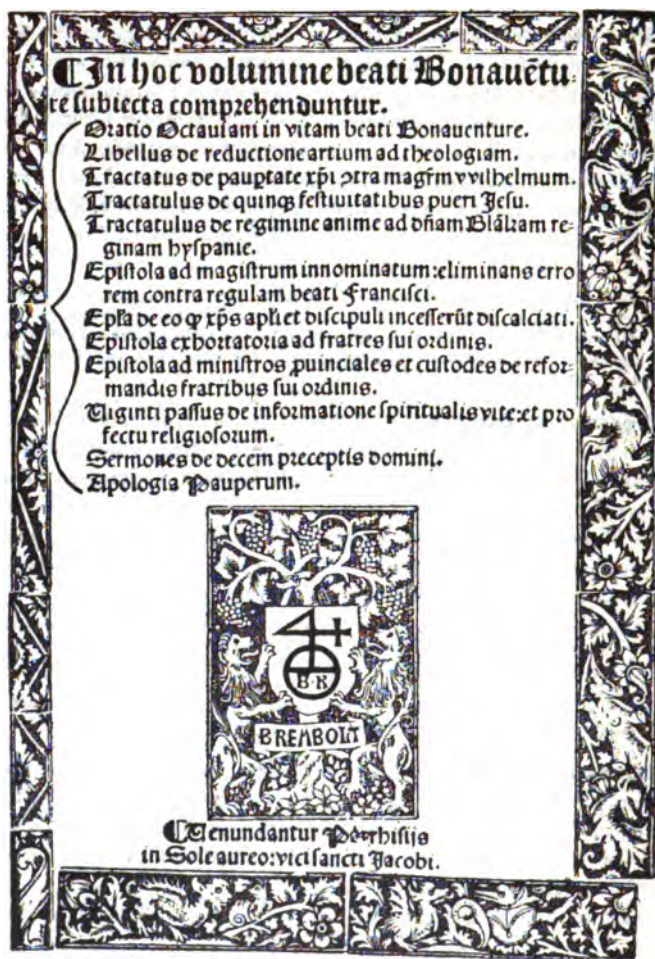 ¶In hoc volumine beati Bonauẽtu-
re subiecta comprehenduntur.
Oratio Octauiani in vitam beati Bonauenture.
Libellus de reductione artium ad theologiam.
Tractatus de paup̱tate xp̃i ꝯtra magr̃m vvilhelmum.
Tractatulus de quinqꝫ festiuitatibus pueri Jesu.
Tractatulus de regimine anime ad dñam Blãkam re-
ginam hyspanie.
Epistola ad magistrum innominatum: eliminans erro
rem contra regulam beati Francisci.
Epl̃a de eo ꝙ xp̃s apl̃i et discipuli incesserũt discalciati.
Epistola exhortatoria ad fratres sui ordinis.
Epistola ad ministros ꝓuinciales et custodes de refor-
mandis fratribus sui ordinis.
Uiginti passus de informatione spiritualis vite: et pro
fectu religiosorum.
Sermones de decem preceptis domini.
Apologia Pauperum.
B·R
BREMBOLT
¶Uenundantur Parrhisijs
in Sole aureo: vici sancti Jacobi.